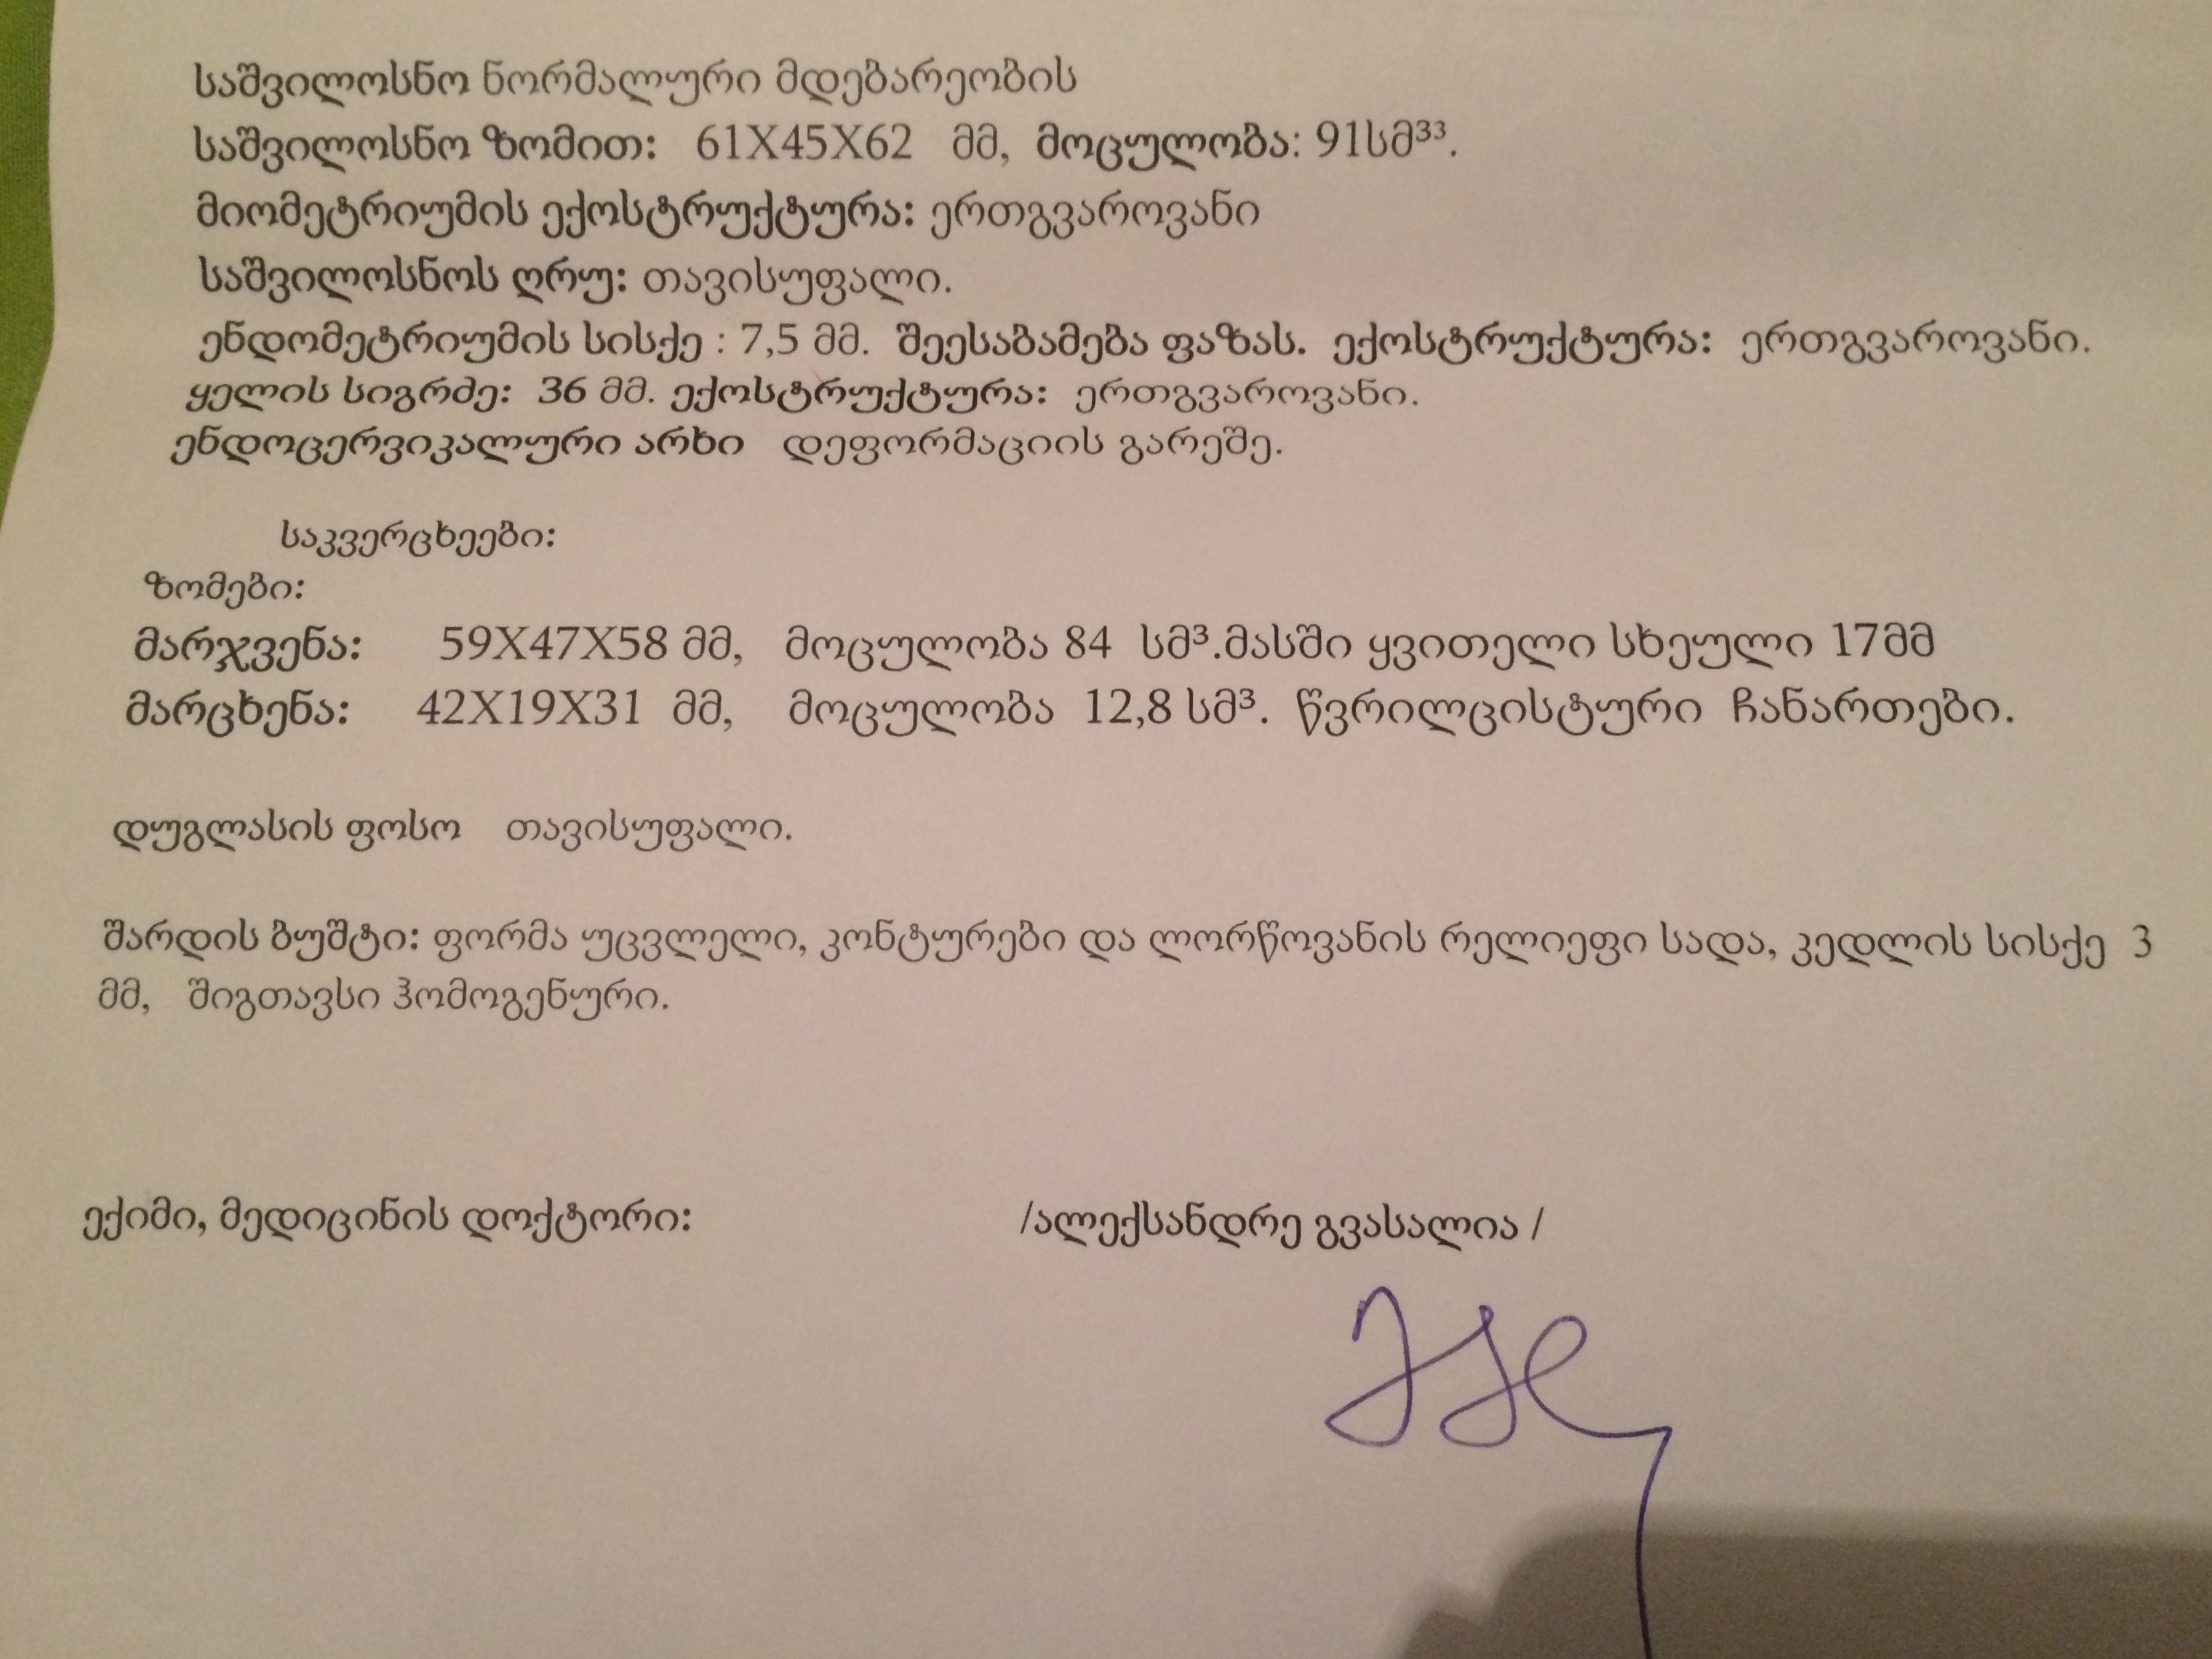 საშვილოსნო ნორმალური მდებარეობის
საშვილოსნო ზომით: 61X45X62 მმ, მოცულობა: 91სმ³³.
მიომეტრიუმის ექოსტრუქტურა: ერთგვაროვანი
საშვილოსნოს ღრუ: თავისუფალი.
ენდომეტრიუმის სისქე : 7,5 მმ. შეესაბამება ფაზას. ექოსტრუქტურა: ერთგვაროვანი.
ყელის სიგრძე: 36 მმ. ექოსტრუქტურა: ერთგვაროვანი.
ენდოცერვიკალური არხი დეფორმაციის გარეშე.
საკვერცხეები:
ზომები:
მარჯვენა: 59X47X58 მმ, მოცულობა 84 სმ³.მასში ყვითელი სხეული 17მმ
მარცხენა: 42X19X31 მმ, მოცულობა 12,8 სმ³. წვრილცისტური ჩანართები.
დუგლასის ფოსო თავისუფალი.
შარდის ბუშტი: ფორმა უცვლელი, კონტურები და ლორწოვანის რელიეფი სადა, კედლის სისქე 3
მმ, შიგთავსი ჰომოგენური.
ექიმი, მედიცინის დოქტორი: /ალექსანდრე გვასალია /